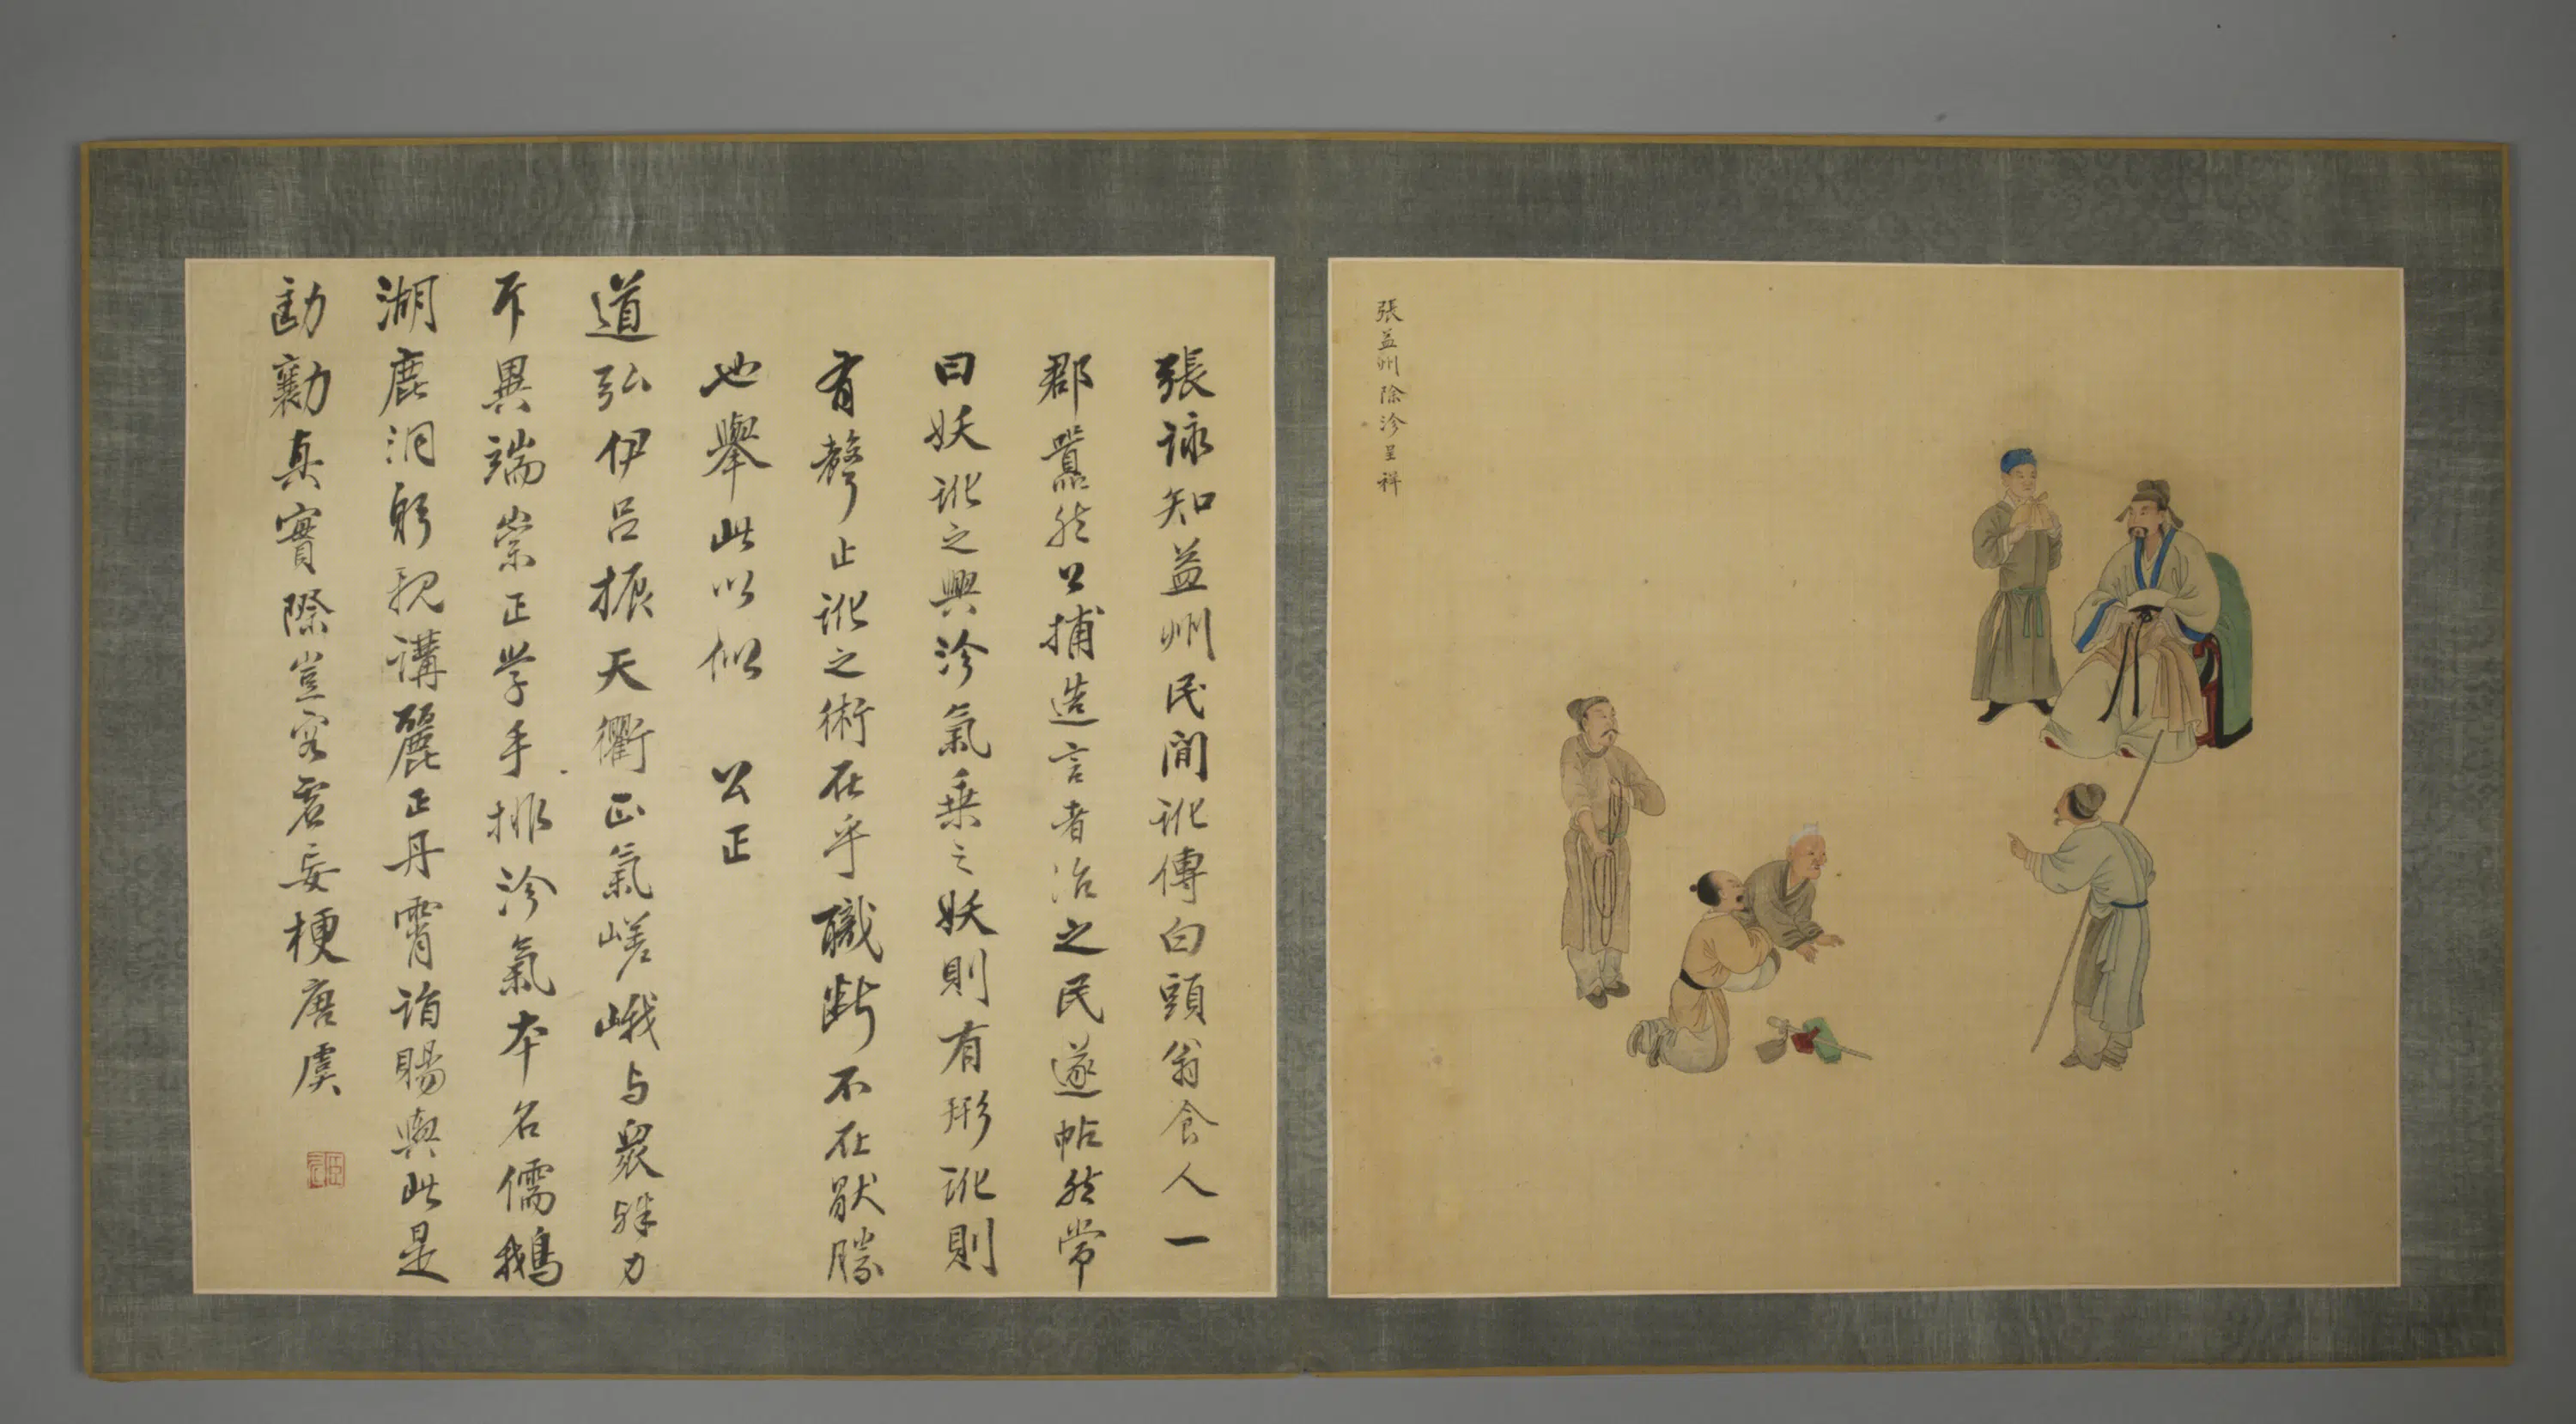 張益州除沴呈祥
張詠知益州民間訛傳白頭翁食人一
郡囂然公捕造言者治之民遂帖然常
曰妖訛之興沴氣乗之妖則有形訛則
有聲止訛之術在乎識断不在厭勝
也舉此以似 公正
道弘伊呂振天衢正氣嵯峨与衆殊力
斥異端崇正学手排沴氣本名儒鵝
湖鹿洞躬親講麗正丹霄詣賜輿此是
勷真實際豈容君妄梗唐虞